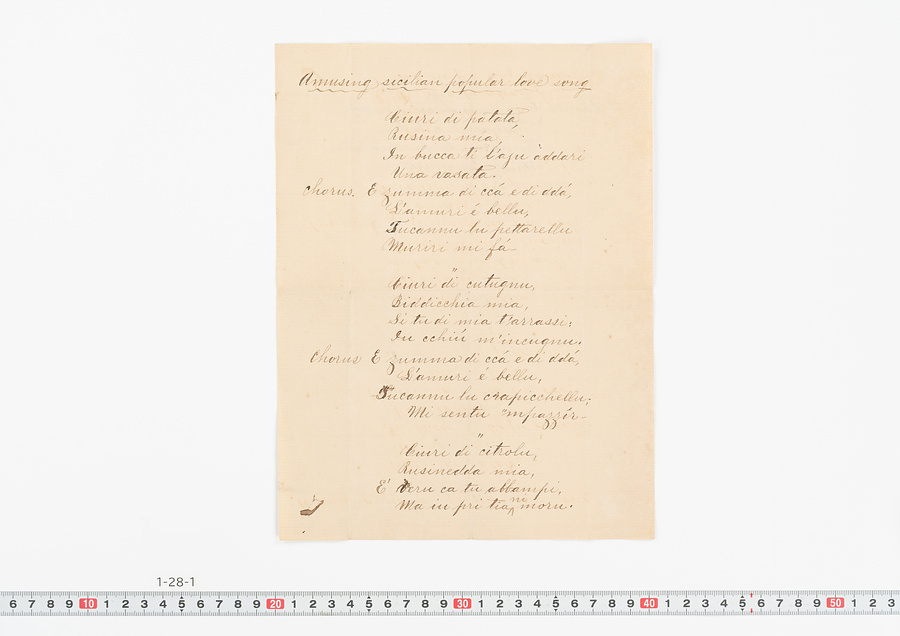 Amusing sicilian popular love song
Ciuri di patata,
Rusina mia,
In bucca ti l'aju addari
Una vasata.
Chorus. E zumma di ccá e di ddá,
L'amuri é bellu,
Tucannu lu pettarellu
Muriri mi fá
Ciuri di cutugnu,
Biddicchia mia,
Si tu di mia t'arrassi;
Iu cchiú m'incugnu.
Chorus E zumma di ccá e di ddá,
L'amuri é bellu,
Tucannu lu crapicchellu;
Mi sentu 'mpazzír
Ciuri di citrolu,
Rusinedda mia,
E' veru ca tu abbampi,
Ma iu pri tia ni moru.
1-28-1
6 7 8 9 10 1 2 3 4 5 6 7 8 9 20 1 2 3 4 5 6 7 8 9 30 1 2 3 4 5 6 7 8 9 40 1 2 3 4 5 6 7 8 9 50 1 2 3